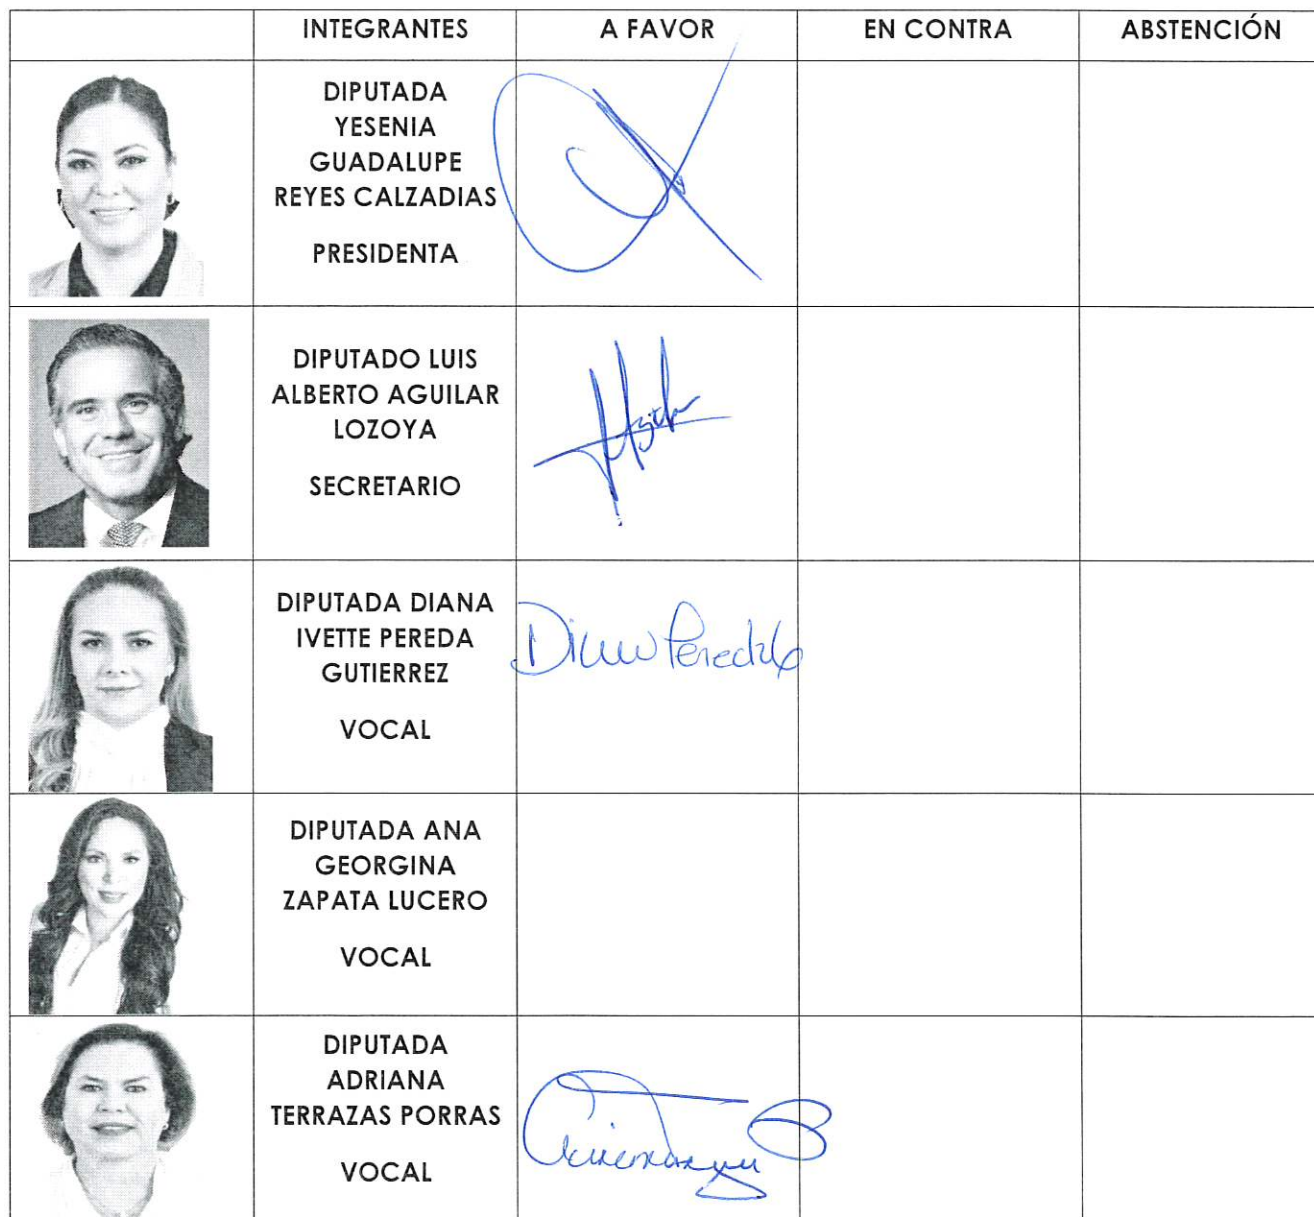 INTEGRANTES A FAVOR EN CONTRA ABSTENCIÓN
DIPUTADA
YESENIA
GUADALUPE
REYES CALZADIAS
PRESIDENTA
DIPUTADO LUIS
ALBERTO AGUILAR
LOZOYA
SECRETARIO
DIPUTADA DIANA
IVETTE PEREDA
GUTIERREZ
VOCAL
DIPUTADA ANA
GEORGINA
ZAPATA LUCERO
VOCAL
DIPUTADA
ADRIANA
TERRAZAS PORRAS
VOCAL